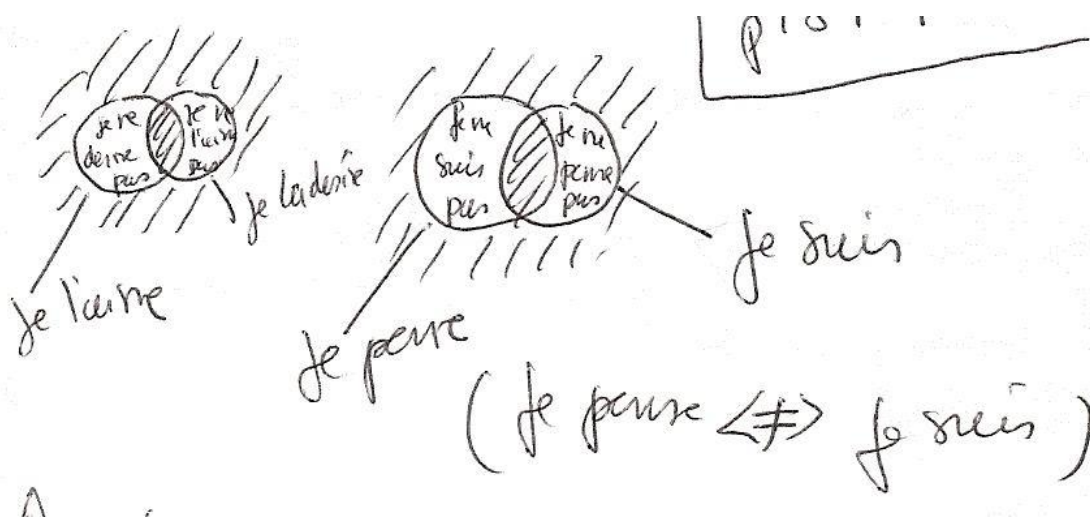 je ne
desire
pas
je ne
l'aime
pas
je la desire
je l'aime
je ne
suis
pas
je ne
pense
pas
je suis
je pense
(je pense <≠> je suis)